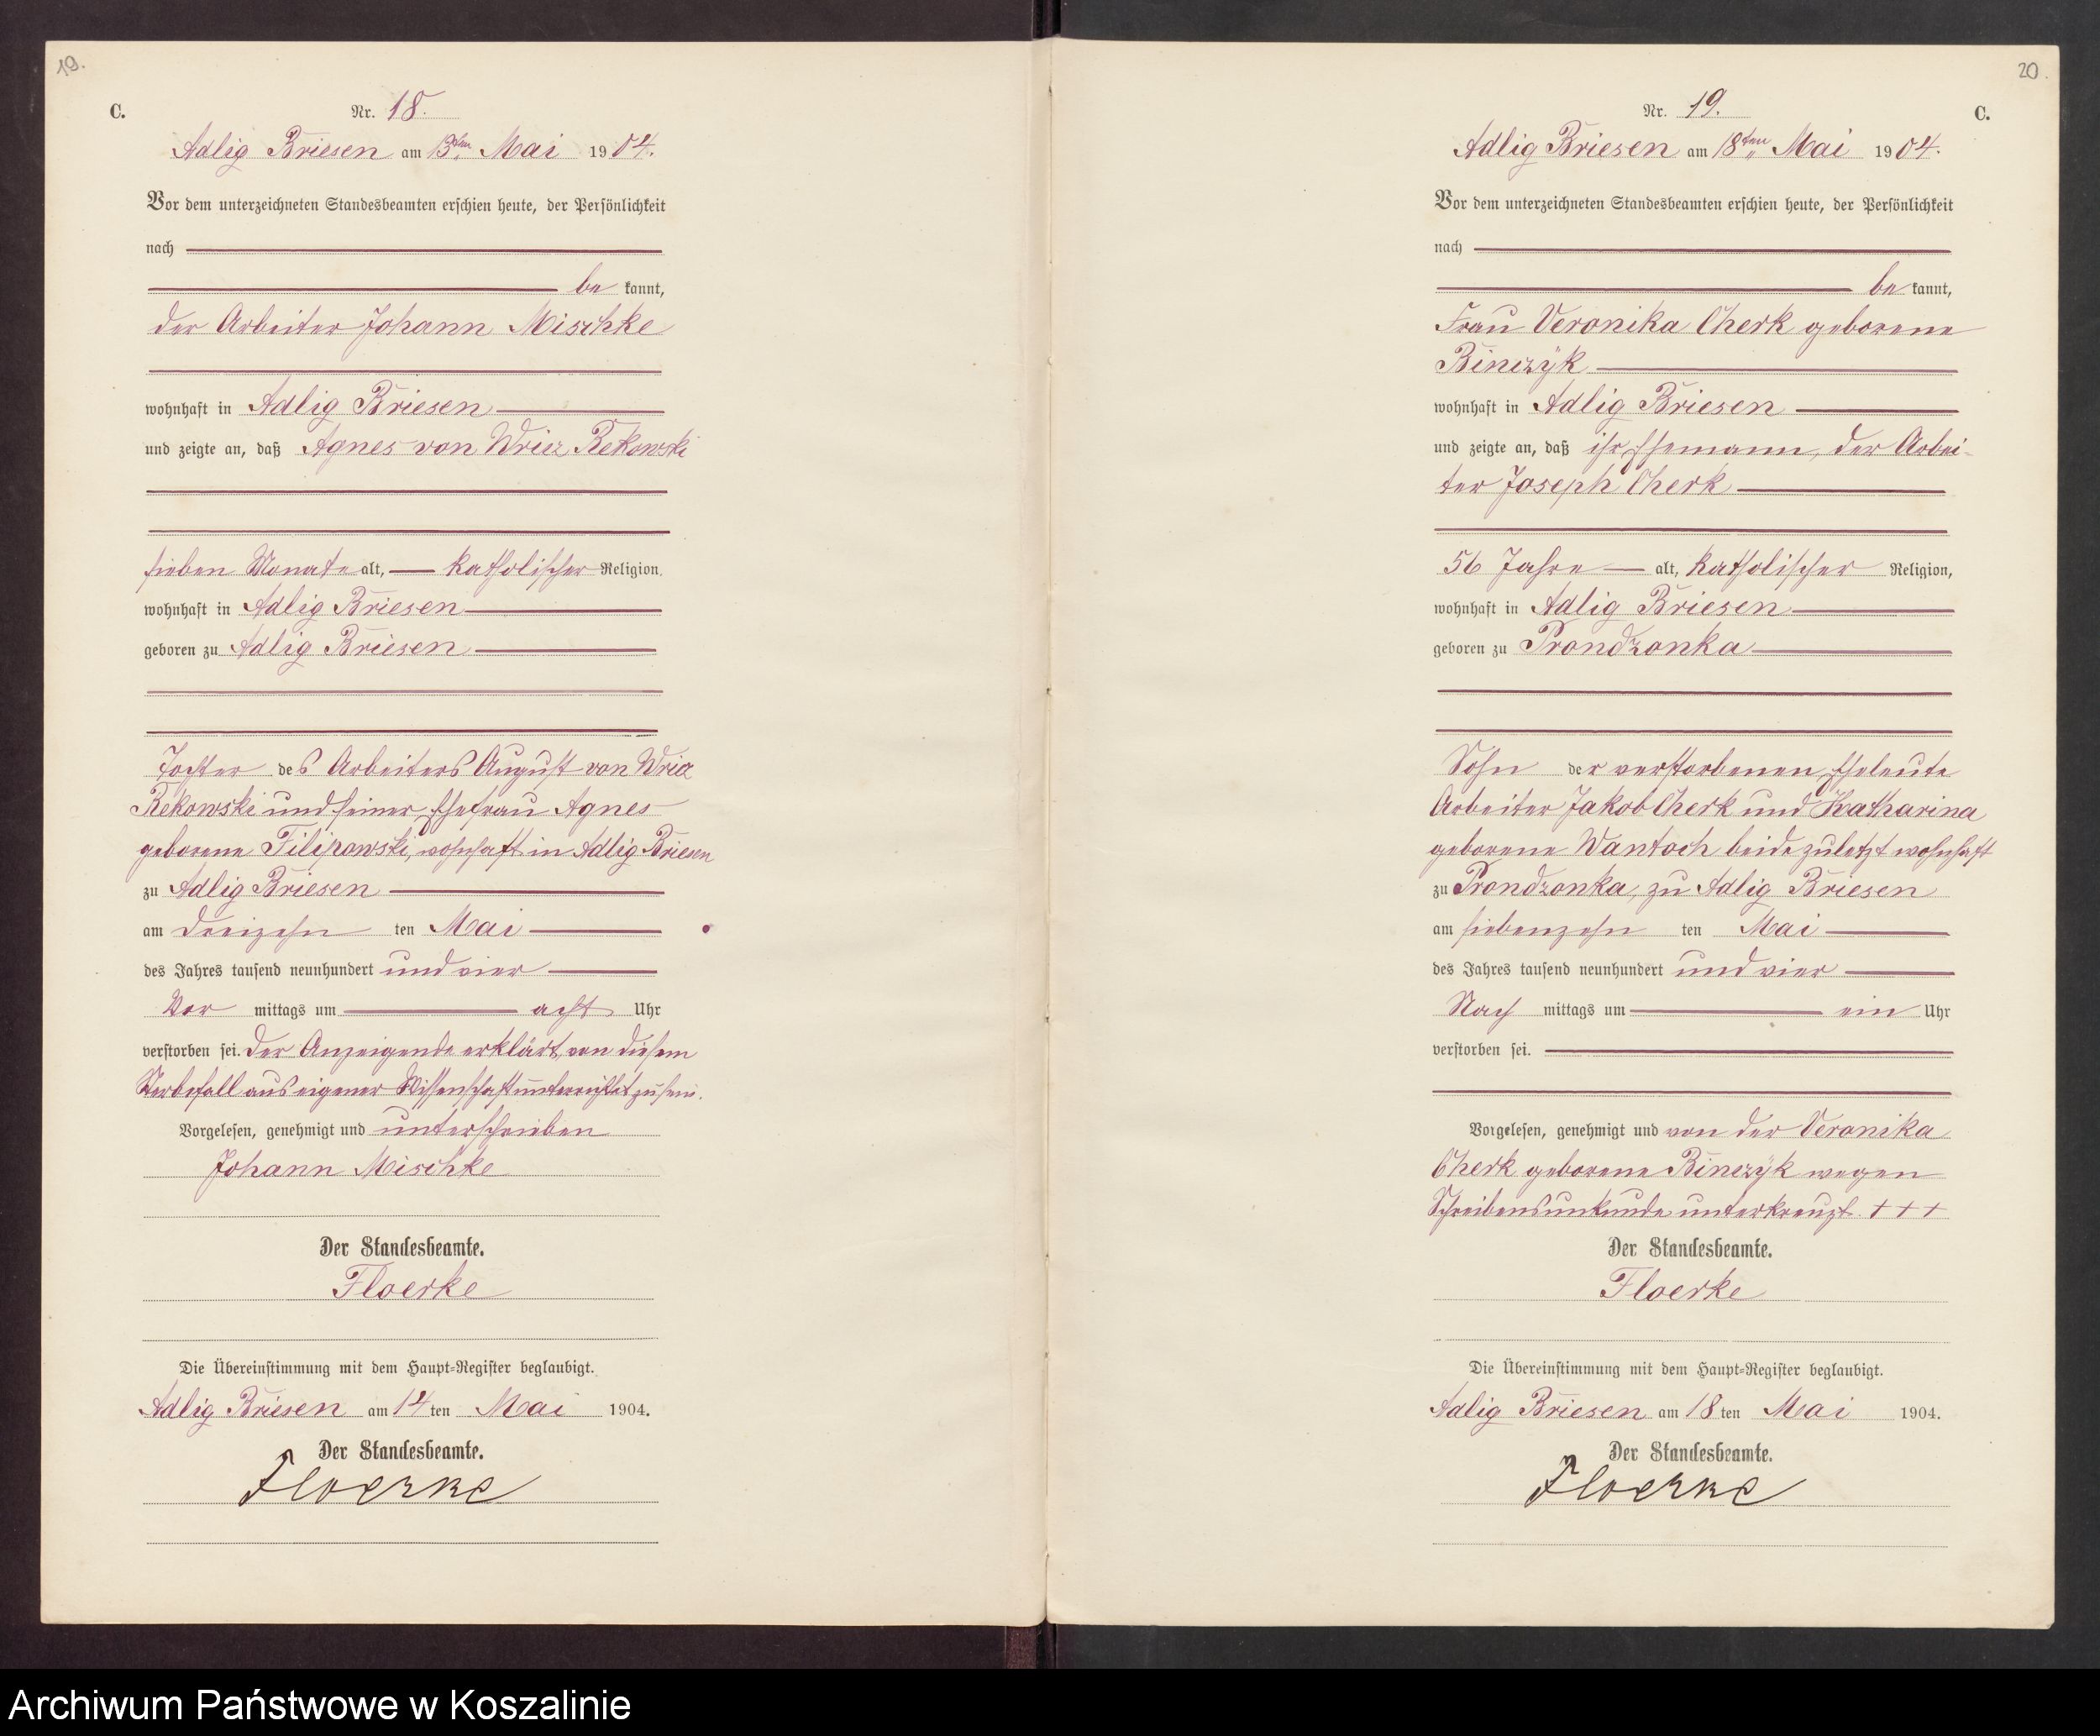 19.
C.
Nr. 18.
Adlig Briesen am 13ten Mai 1904.
Vor dem unterzeichneten Standesbeamten erschien heute, der Persönlichkeit
nach
be kannt,
der Arbeiter Johann Mischke
wohnhaft in Adlig Briesen
und zeigte an, daß Agnes von Wricz Rekowski
sieben Monate alt, katholischer Religion,
wohnhaft in Adlig Briesen
geboren zu Adlig Briesen
Tochter des Arbeiters August von Wricz
Rekowski und seiner Ehefrau Agnes
geborene Filipowski, wohnhaft in Adlig Briesen
zu Adlig Briesen
am dreizehn ten Mai
des Jahres tausend neunhundert und vier
Vor mittags um acht Uhr
verstorben sei. Der Anzeigende erklärt, von diesem
Sterbefall aus eigener Wissenschaft unterrichtet zu sein.
Vorgelesen, genehmigt und unterschrieben
Johann Mischke
Der Standesbeamte.
Floerke
Die Übereinstimmung mit dem Haupt-Register beglaubigt.
Adlig Briesen am 14 ten Mai 1904.
Der Standesbeamte.
Floerke
20.
Nr. 19.
C.
Adlig Briesen am 18ten Mai 1904.
Vor dem unterzeichneten Standesbeamten erschien heute, der Persönlichkeit
nach
be kannt,
Frau Veronika Cherk geborene
Binczyk
wohnhaft in Adlig Briesen
und zeigte an, daß ihr Ehemann, der Arbei-
ter Joseph Cherk
56 Jahre alt, katholischer Religion,
wohnhaft in Adlig Briesen
geboren zu Prondzonka
Sohn der verstorbenen Eheleute
Arbeiter Jakob Cherk und Katharina
geborene Wantoch beide zuletzt wohnhaft
zu Prondzonka, zu Adlig Briesen
am siebenzehn ten Mai
des Jahres tausend neunhundert und vier
Nach mittags um ein Uhr
verstorben sei.
Vorgelesen, genehmigt und von der Veronika
Cherk geborene Binczyk wegen
Schreibensunkunde unterkreuzt. + + +
Der Standesbeamte.
Floerke
Die Übereinstimmung mit dem Haupt-Register beglaubigt.
Adlig Briesen am 18 ten Mai 1904.
Der Standesbeamte.
Floerke
Archiwum Państwowe w Koszalinie